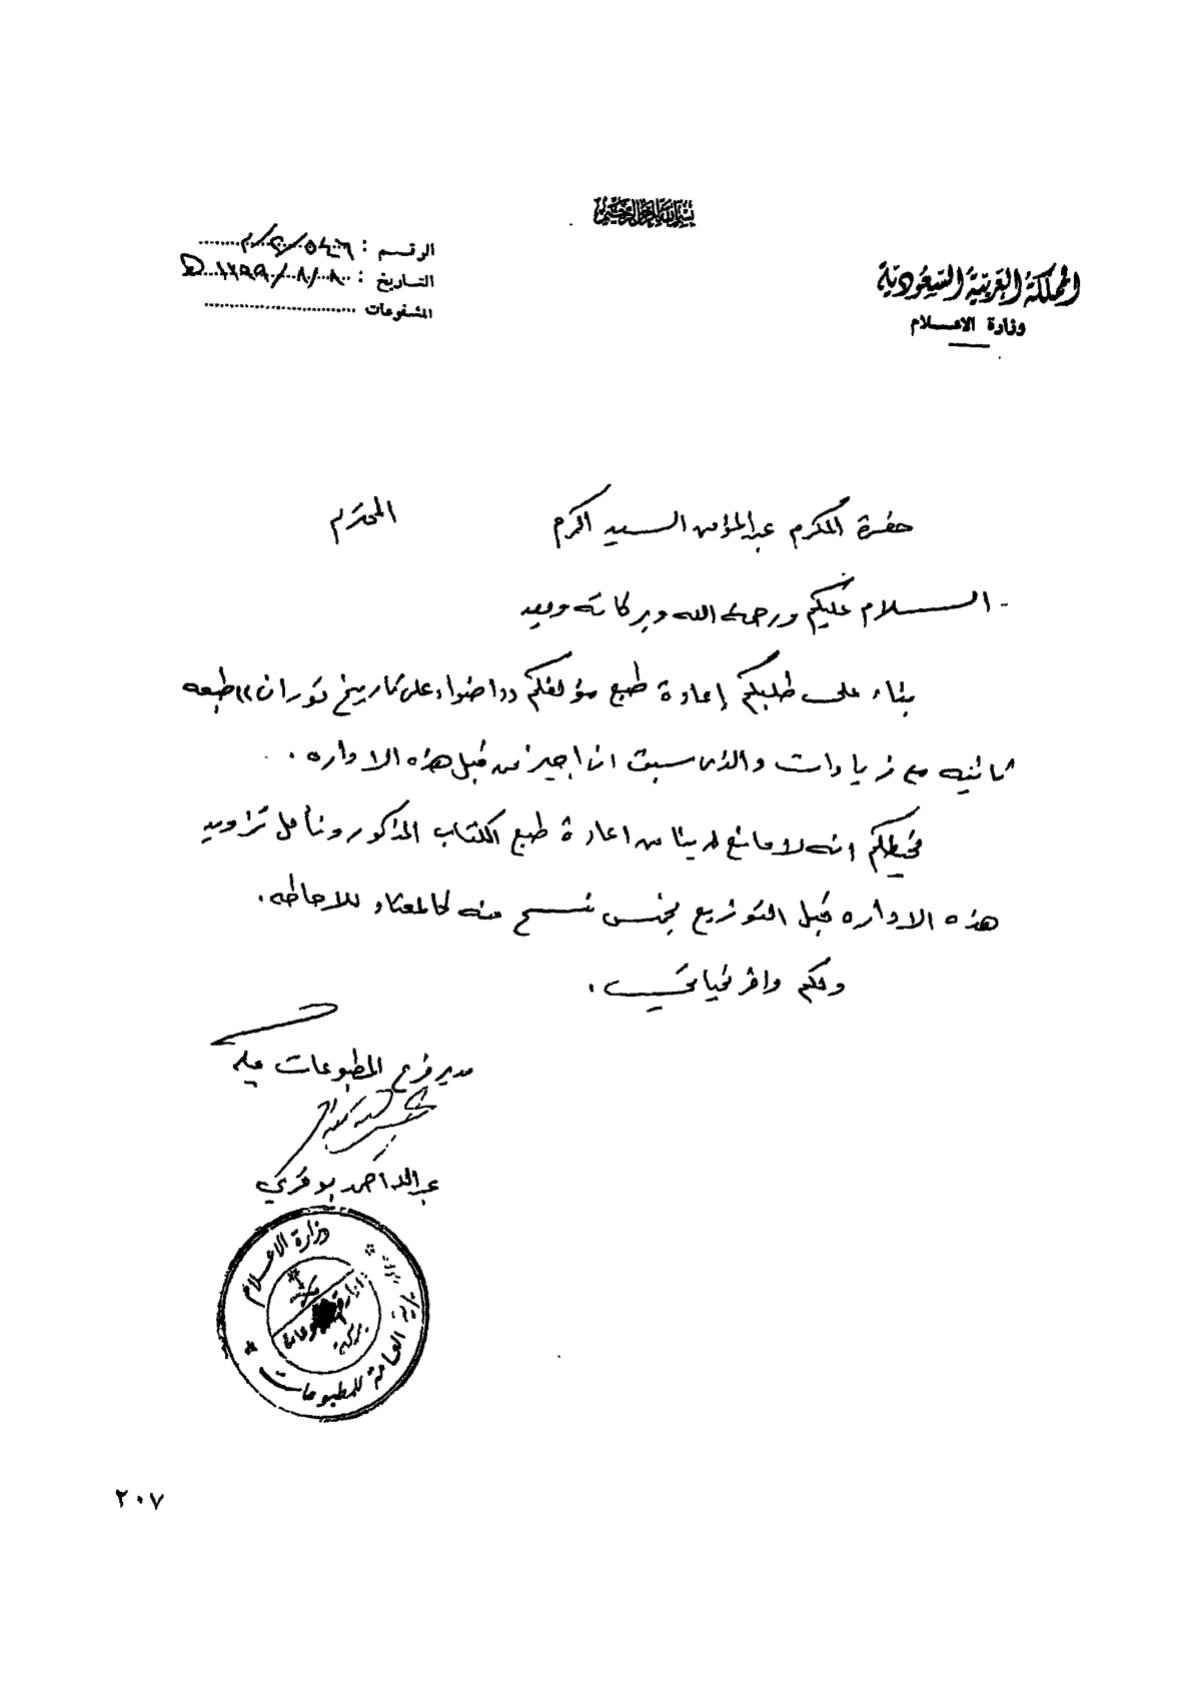 بسم الله الرحمن الرحيم
المملكة العربية السعودية
وزارة الاعلام
الرقم : ٥٤٠٦/٢٠/م
التاريخ : ٨/٨/١٣٩٩ هـ
المشفوعات
حضرة المكرم عبدالمؤمن السيد اكرم المحترم
السلام عليكم ورحمة الله وبركاته وبعد
بناء على طلبكم إعادة طبع مؤلفكم ((اضواء على تاريخ توران)) طبعه
ثانيه مع زيادات والذى سبق ان اجيز من قبل هذه الاداره .
نحيطكم انه لا مانع لدينا من اعادة طبع الكتاب المذكور ونأمل تزويد
هذه الاداره قبل التوزيع بخمس نسخ منه كالمعتاد للاحاطه .
ولكم وافر تحياتى .
مدير فرع المطبوعات بمكه
عبدالله احمد
وزارة الاعلام
العامة للمطبوعات
٢٠٧